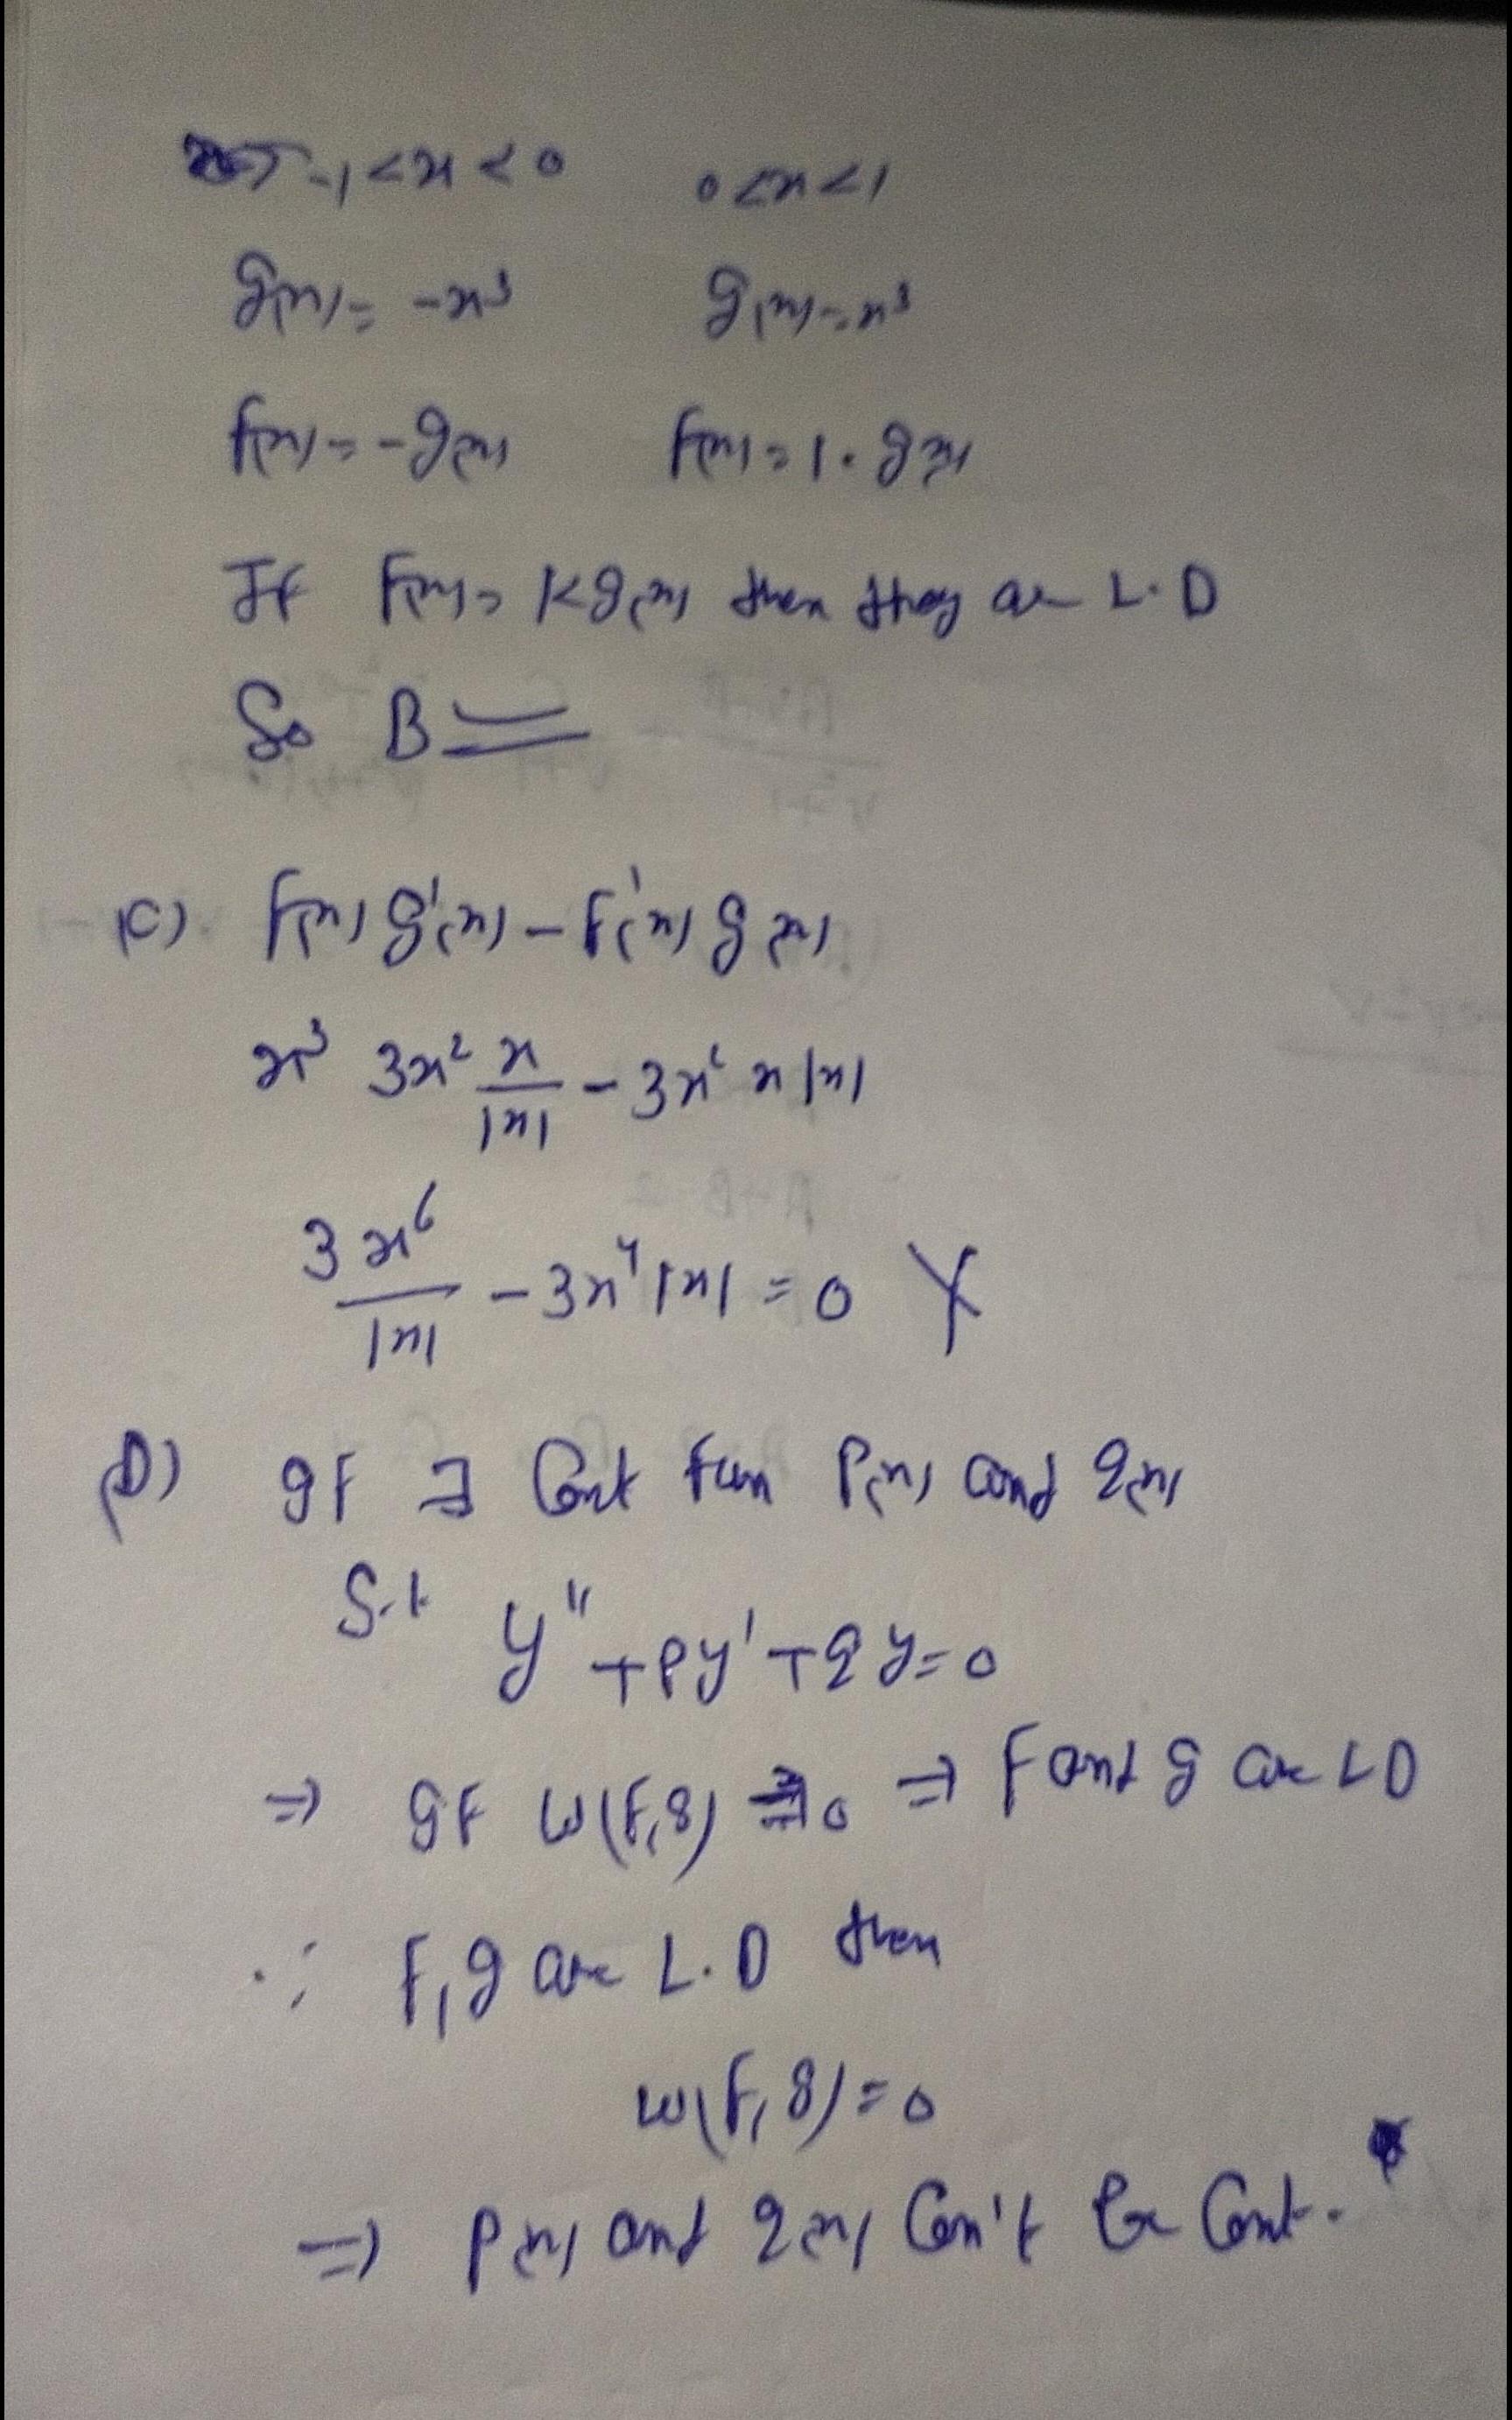 -1<x<0 0<x<1
g(x)= -x³ g(x)=x³
f(x)=-g(x) f(x)=1·g(x)
If f(x)= Kg(x) then they are L.D
So B
(C) f(x)g'(x)-f'(x)g(x)
x³ 3x² x/|x| - 3x² x|x|
3x⁶/|x| - 3x⁴|x|=0 X
(D) If ∃ Cont fun P(x) and q(x)
S.t y''+Py'+qy=0
⇒ If W(F,g) 0 ⇒ f and g are LD
∵ f,g are L.D then
w(f,g)=0
⇒ P(x) and q(x) Can't be Cont.